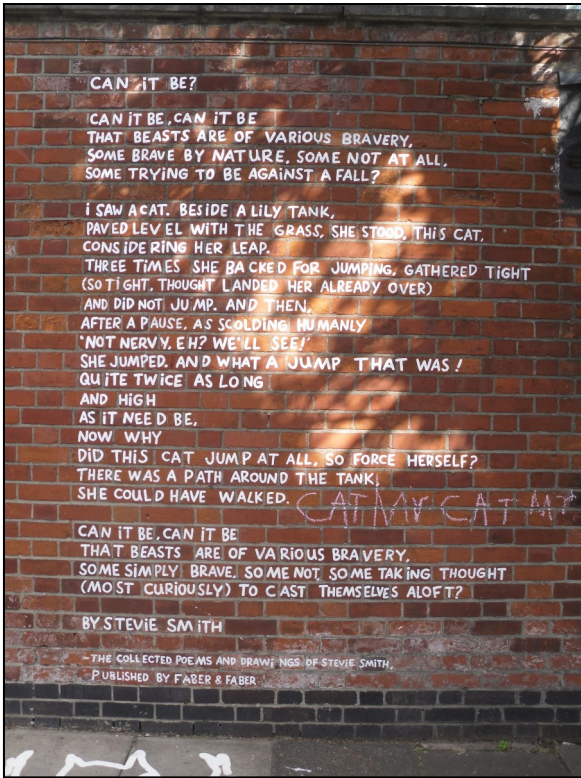 CAN iT BE?
CAN iT BE, CAN iT BE
THAT BEASTS ARE OF VARIOUS BRAVERY,
SOME BRAVE BY NATURE, SOME NOT AT ALL,
SOME TRYING TO BE AGAINST A FALL?
i SAW A CAT. BESIDE A LILY TANK,
PAVED LEVEL WITH THE GRASS, SHE STOOD, THIS CAT,
CONSIDERING HER LEAP.
THREE TIMES SHE BACKED FOR JUMPING, GATHERED TIGHT
(SO TIGHT, THOUGHT LANDED HER ALREADY OVER)
AND DID NOT JUMP. AND THEN,
AFTER A PAUSE, AS SCOLDING HUMANLY
'NOT NERVY, EH? WE'LL SEE!'
SHE JUMPED. AND WHAT A JUMP THAT WAS!
QUITE TWICE AS LONG
AND HIGH
AS IT NEED BE,
NOW WHY
DID THIS CAT JUMP AT ALL, SO FORCE HERSELF?
THERE WAS A PATH AROUND THE TANK,
SHE COULD HAVE WALKED.
CAT MY CAT
CAN IT BE, CAN IT BE
THAT BEASTS ARE OF VARIOUS BRAVERY,
SOME SIMPLY BRAVE, SOME NOT, SOME TAKING THOUGHT
(MOST CURIOUSLY) TO CAST THEMSELVES ALOFT?
BY STEVIE SMITH
-THE COLLECTED POEMS AND DRAWINGS OF STEVIE SMITH,
PUBLISHED BY FABER & FABER